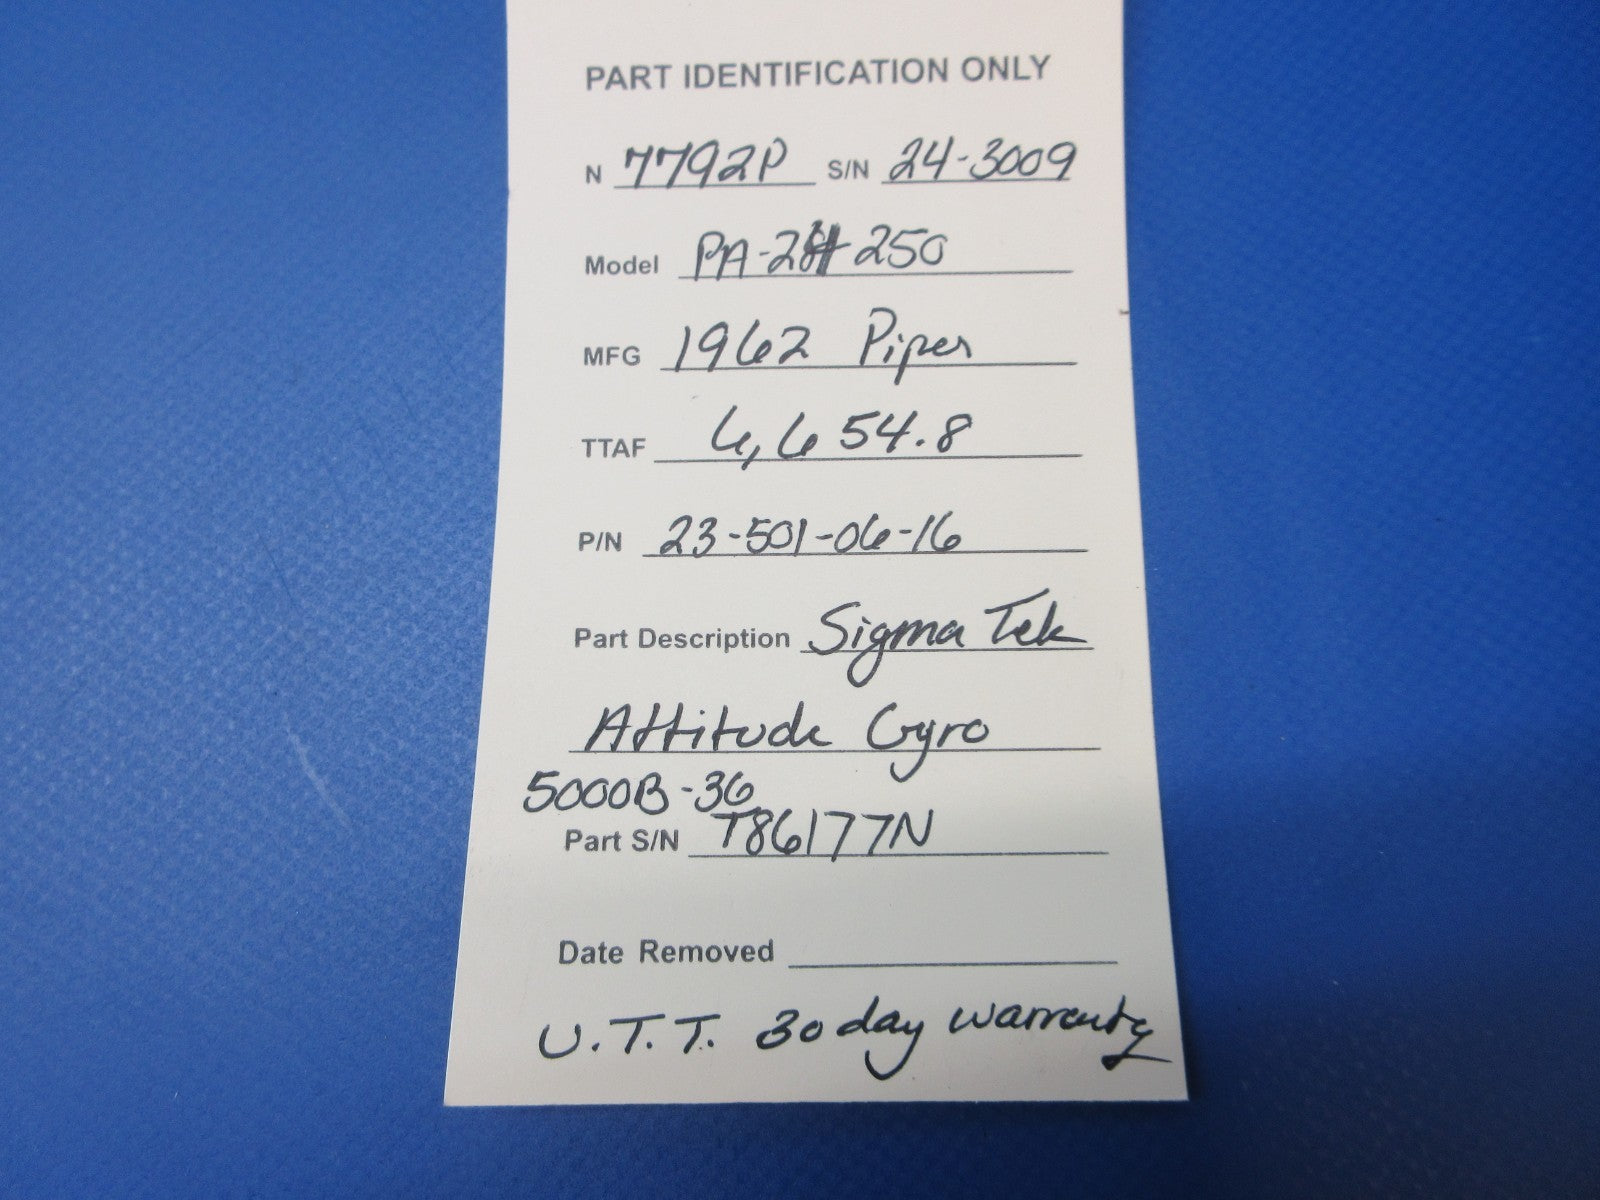 PART IDENTIFICATION ONLY
N 7792P S/N 24-3009
Model PA-24 250
MFG 1962 Piper
TTAF 6,654.8
P/N 23-501-06-16
Part Description Sigma Tek
Attitude Gyro
5000B-36
Part S/N T86177N
Date Removed
U.T.T. 30 day warranty